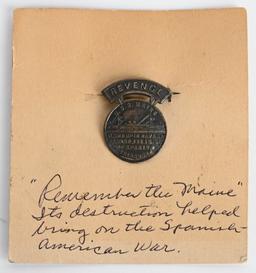 REVENGE
"Remember the Maine"
Its destruction helped
bring on the Spanish-
American War.